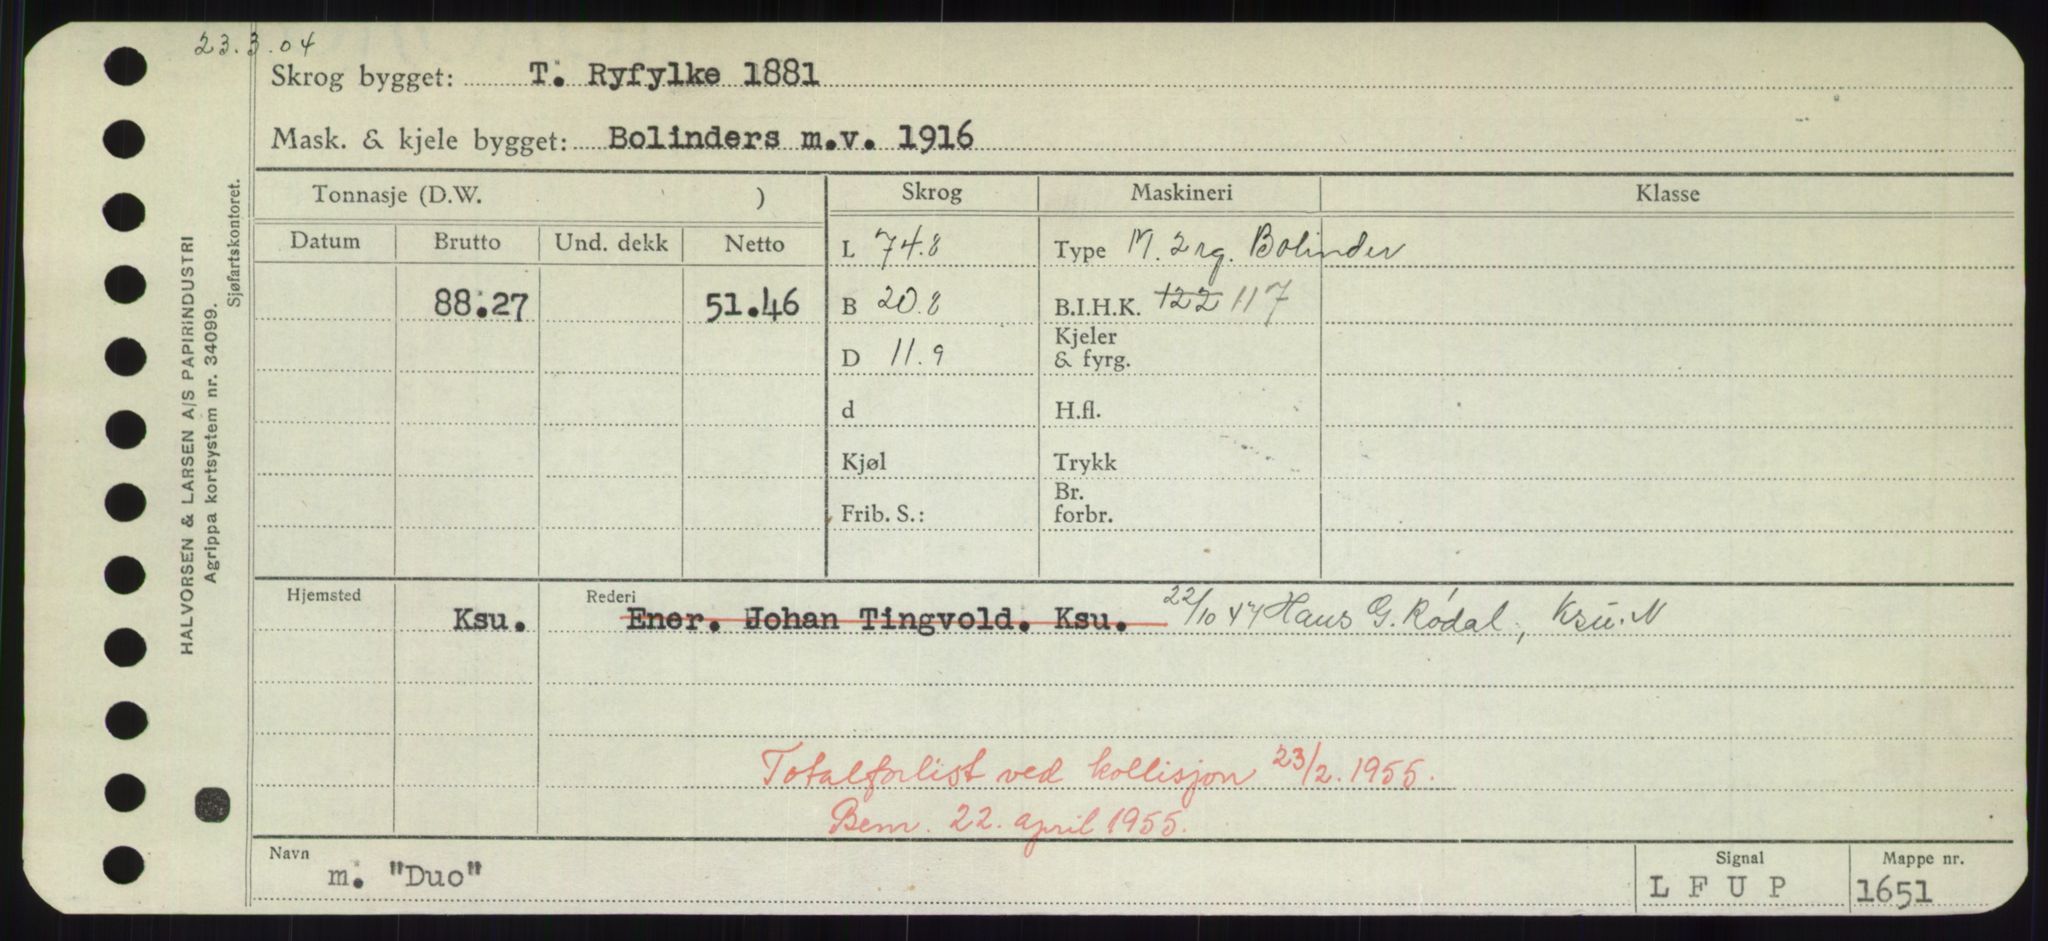 23.3.04
Skrog bygget: T. Ryfylke 1881
Mask. & kjele bygget: Bolinders m.v. 1916
Tonnasje (D.W. ) Skrog Maskineri Klasse
Datum Brutto Und. dekk Netto L 74.8 Type M. 2 rg. Bolinder
88.27 51.46 B 20.8 B.I.H.K. 122 117
D 11.9 Kjeler
& fyrg.
d H.fl.
Kjøl Trykk
Frib. S.: Br.
forbr.
Hjemsted Rederi
Ksu. Ener. Johan Tingvold. Ksu. 22/10 47 Hans G. Rødal, Ksu. N
Totalforlist ved kollisjon 23/2. 1955.
Bem. 22. april 1955.
Navn m. "Duo" Signal L F U P Mappe nr. 1651
HALVORSEN & LARSEN A/S PAPIRINDUSTRI
Agrippa kortsystem nr. 34099.
Sjøfartskontoret.